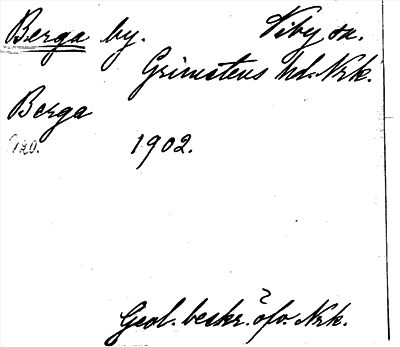 Berga by. Viby sn.
Grimstens hd. Nrk.
Berga
1902.
Geol. beskr. öfv. Nrk.